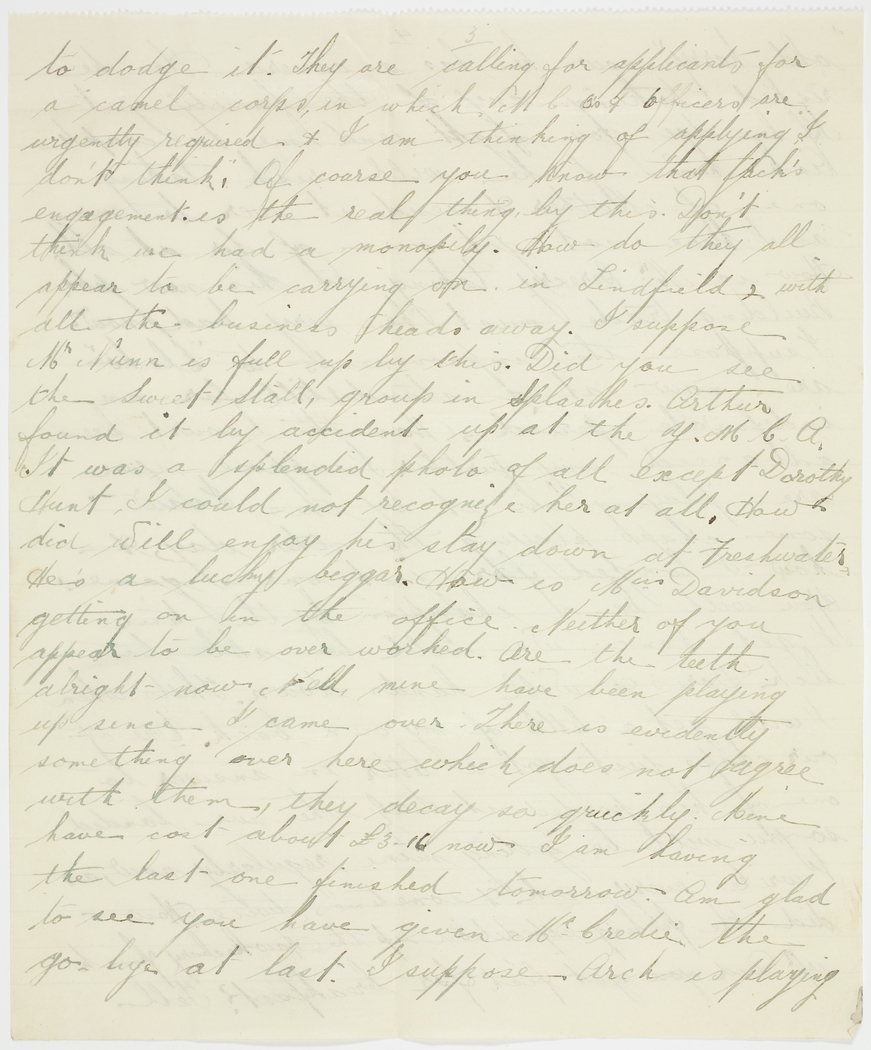 3
to dodge it. They are calling for applicants for
a camel corps, in which N C Os & Officers are
urgently required & I am thinking of applying "I
don't think". Of course you know that Jack's
engagement is the real thing by this. Don't
think we had a monopily. How do they all
appear to be carrying on in Lindfield & with
all the business heads away. I suppose
Mr Nunn is full up by this. Did you see
the Sweet Stall, group in Splashes. Arthur
found it by accident up at the Y. M. C. A.
It was a splendid photo of all except Dorothy
Hunt, I could not recognize her at all. How
did Will enjoy his stay down at Freshwater.
He's a lucky beggar. How is Miss Davidson
getting on in the office. Neither of you
appear to be over worked. Are the teeth
alright now Nell, mine have been playing
up since I came over. There is evidently
something over here which does not agree
with them, they decay so quickly. Mine
have cost about £3-16 now I am having
the last one finished tomorrow. Am glad
to see you have given Mc Credie the
go-bye at last. I suppose Arch is playing